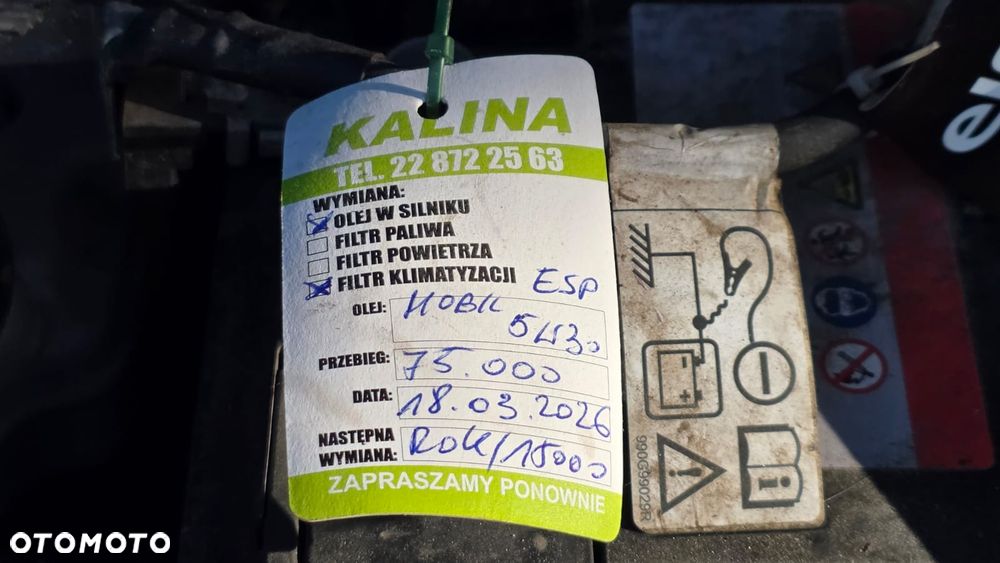 KALINA
TEL. 22 872 25 63
WYMIANA:
OLEJ W SILNIKU
FILTR PALIWA
FILTR POWIETRZA
FILTR KLIMATYZACJI
OLEJ: MOBIL ESP
5W30
PRZEBIEG: 75.000
DATA: 18.03.2026
NASTĘPNA
WYMIANA: ROK/15000
ZAPRASZAMY PONOWNIE
990G99029R
OTOMOTO